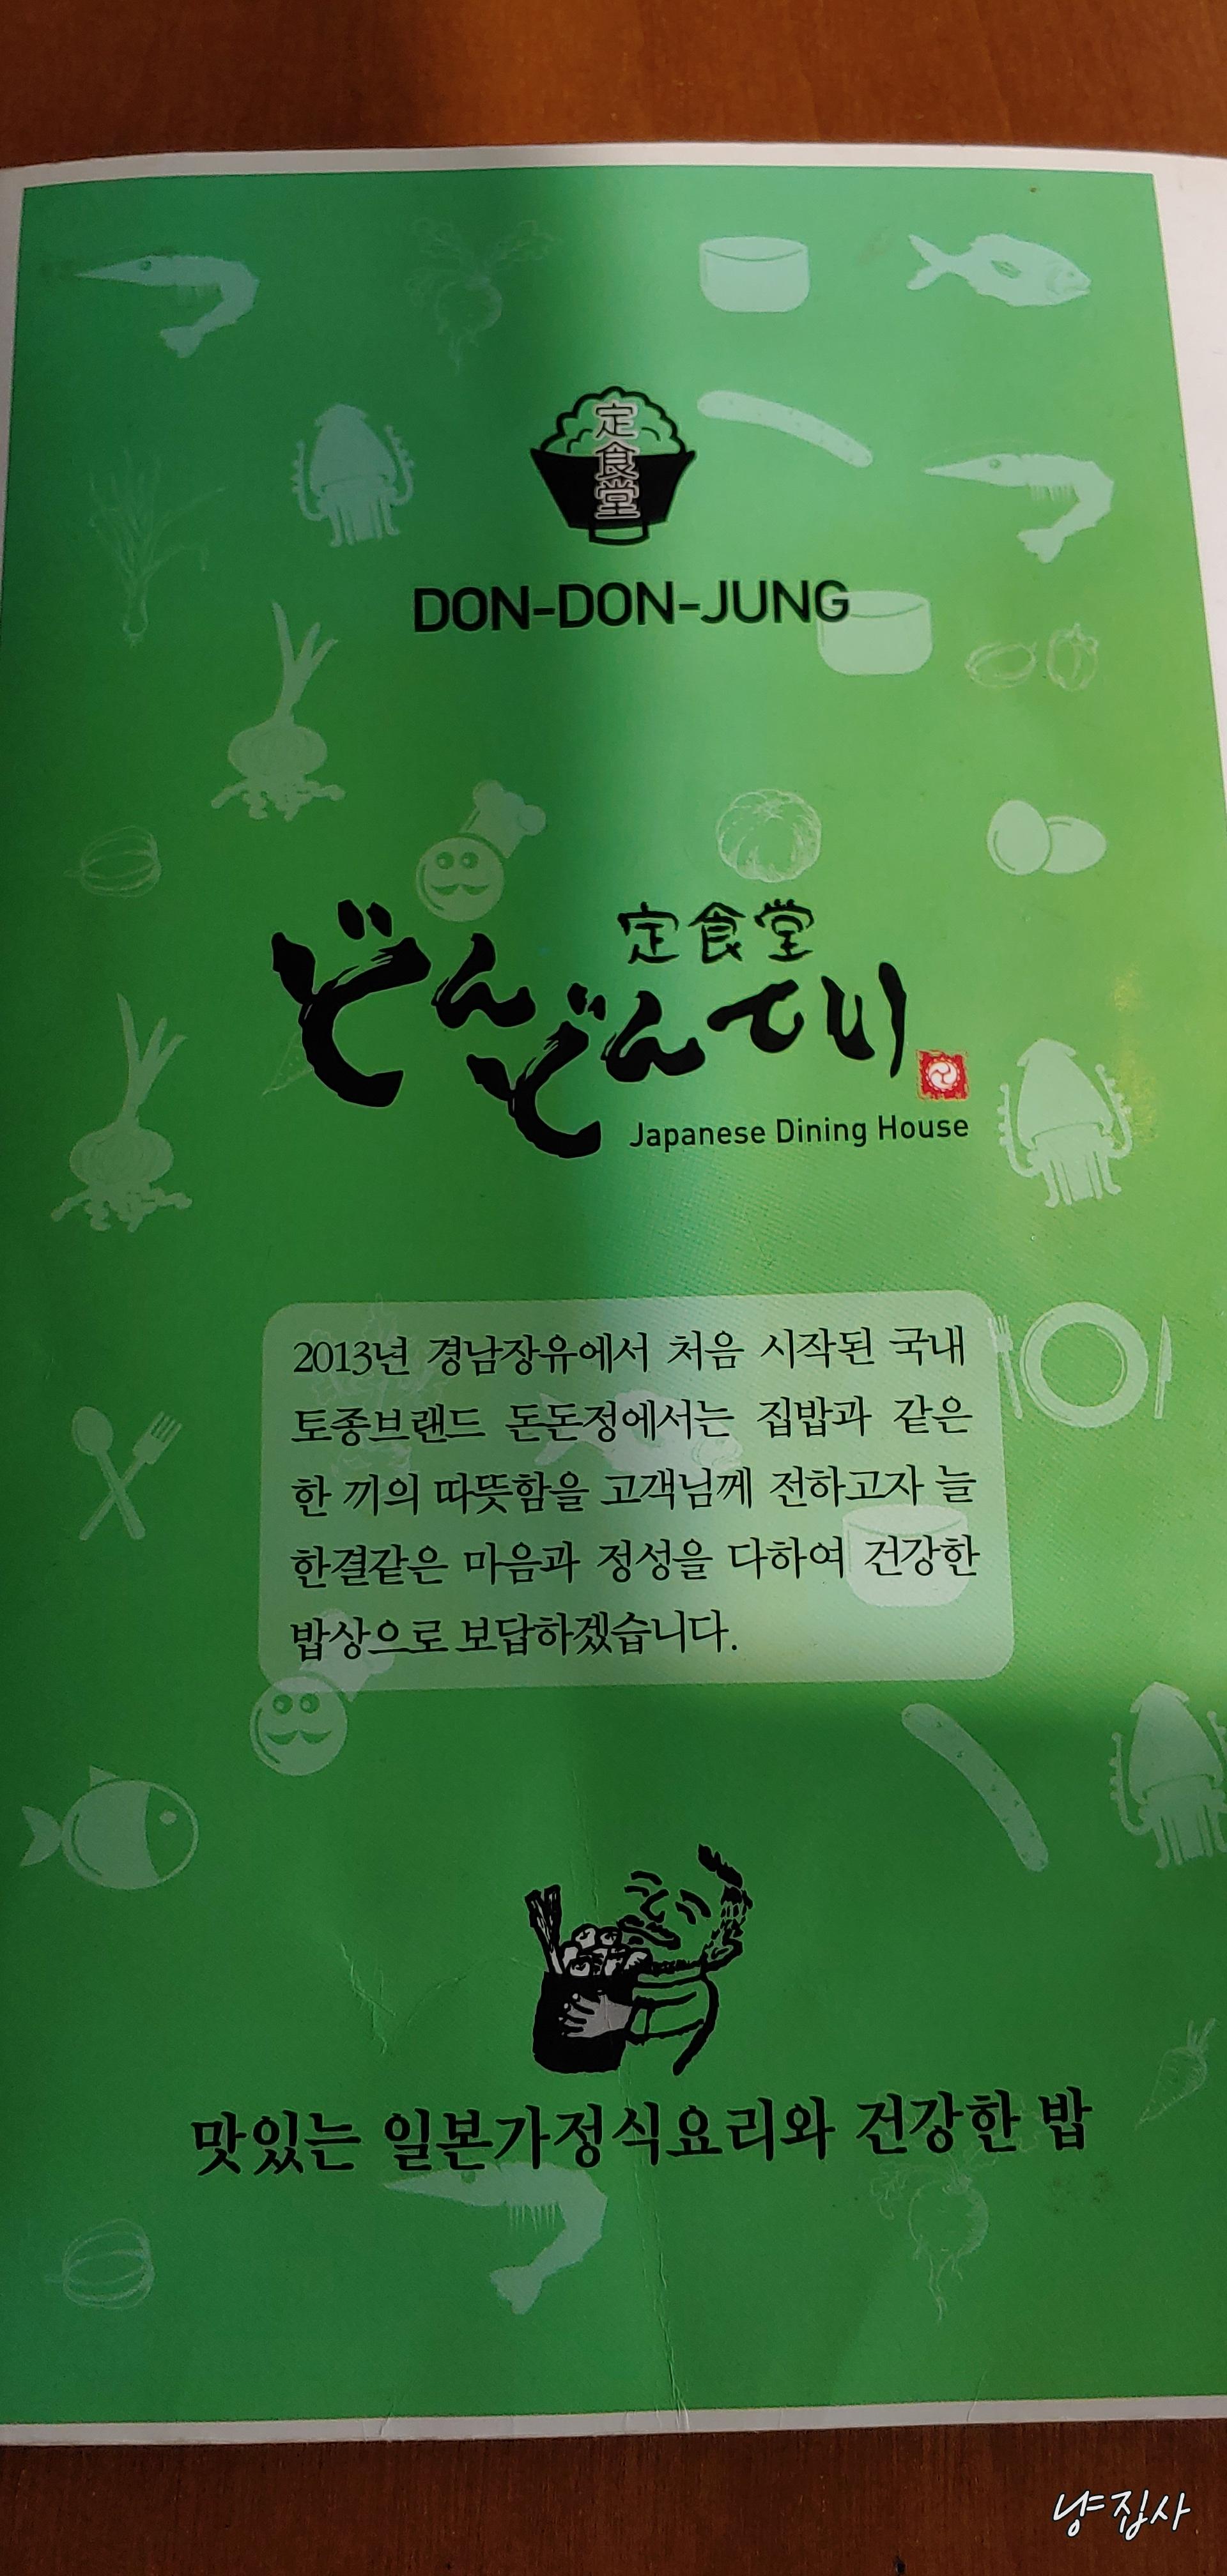 定食堂
DON-DON-JUNG
定食堂
どんどんてい
Japanese Dining House
2013년 경남장유에서 처음 시작된 국내
토종브랜드 돈돈정에서는 집밥과 같은
한 끼의 따뜻함을 고객님께 전하고자 늘
한결같은 마음과 정성을 다하여 건강한
밥상으로 보답하겠습니다.
맛있는 일본가정식요리와 건강한 밥
냥집사